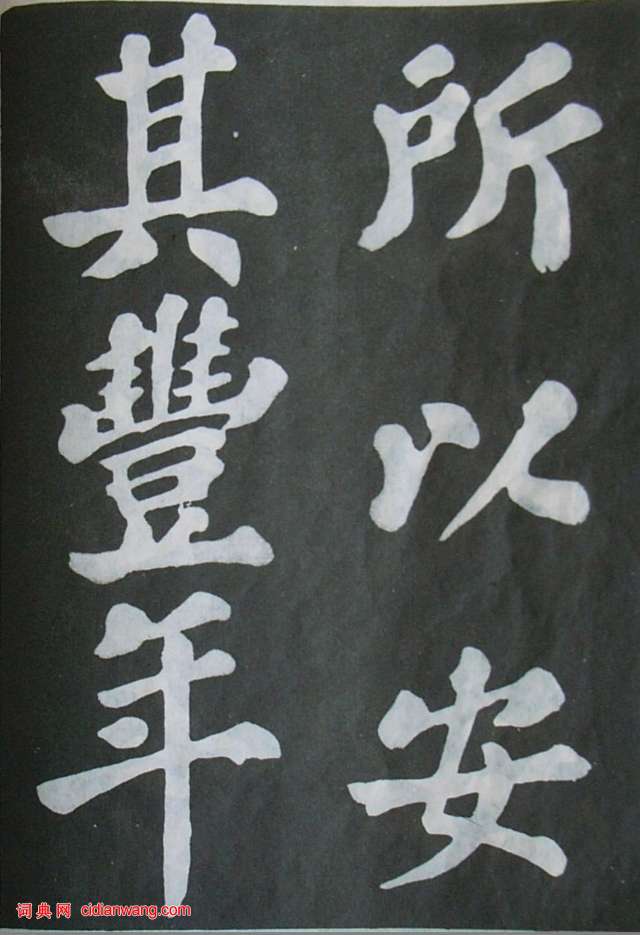 所以安
其豐年
词典网 cidianwang.com